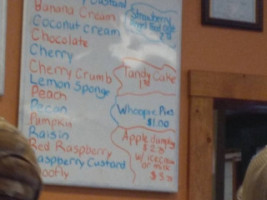 Custard
Banana Cream
Coconut cream
Chocolate
Cherry
Cherry Crumb
Lemon Sponge
Peach
Pecan
Pumpkin
Raisin
Red Raspberry
Raspberry Custard
Strawberry
Tandy Cake
Whoopie Pies
$1.00
Apple dumplg
w/ ice cream